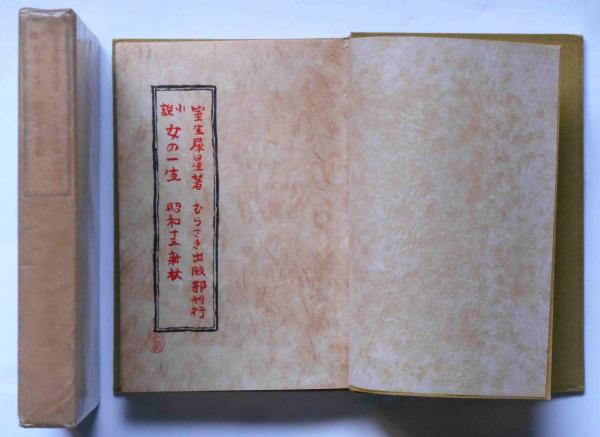 室生犀星著 むらさき出版部刊行
小説 女の一生 昭和十三新秋